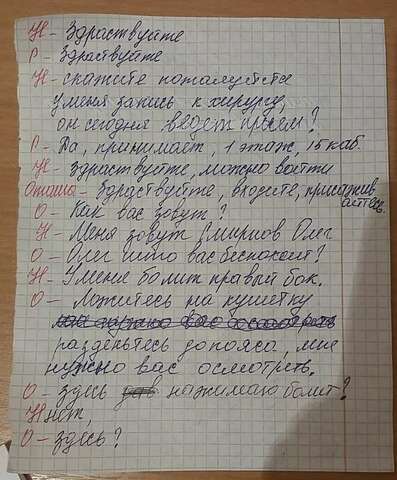 Н - Здраствуйте
Р - Здраствуйте
Н - скажите пожалуйста
У меня запись к хирургу,
он сегодня ведет прием?
Р - Да, принимает, 1 этаж, 15 каб.
Н - Здраствуйте, можно войти
О - Здраствуйте, входите, присажив
айтесь.
О - Как вас зовут?
Н - Меня зовут Смирнов Олег
О - Олег что вас беспокоит?
Н - У меня болит правый бок.
О - Ложитесь на кушетку
разденьтесь до пояса, мне
нужно вас осмотреть.
О - Здесь нажимаю болит?
Н нет,
О - Здесь?